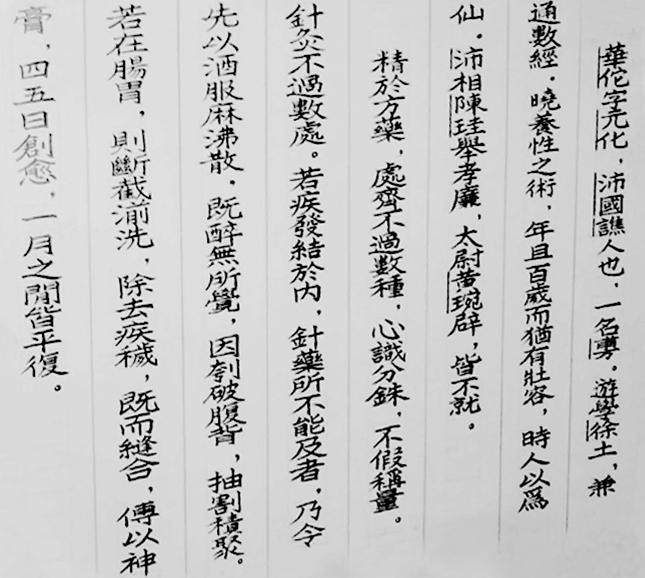 華佗字元化，沛國譙人也，一名旉。遊學徐土，兼
通數經。曉養性之術，年且百歲而猶有壯容，時人以為
仙。沛相陳珪舉孝廉，太尉黃琬辟，皆不就。
精於方藥，處齊不過數種，心識分銖，不假稱量。
針灸不過數處。若疾發結於內，針藥所不能及者，乃令
先以酒服麻沸散，既醉無所覺，因刳破腹背，抽割積聚。
若在腸胃，則斷截湔洗，除去疾穢，既而縫合，傅以神
膏，四五日創愈，一月之間皆平復。